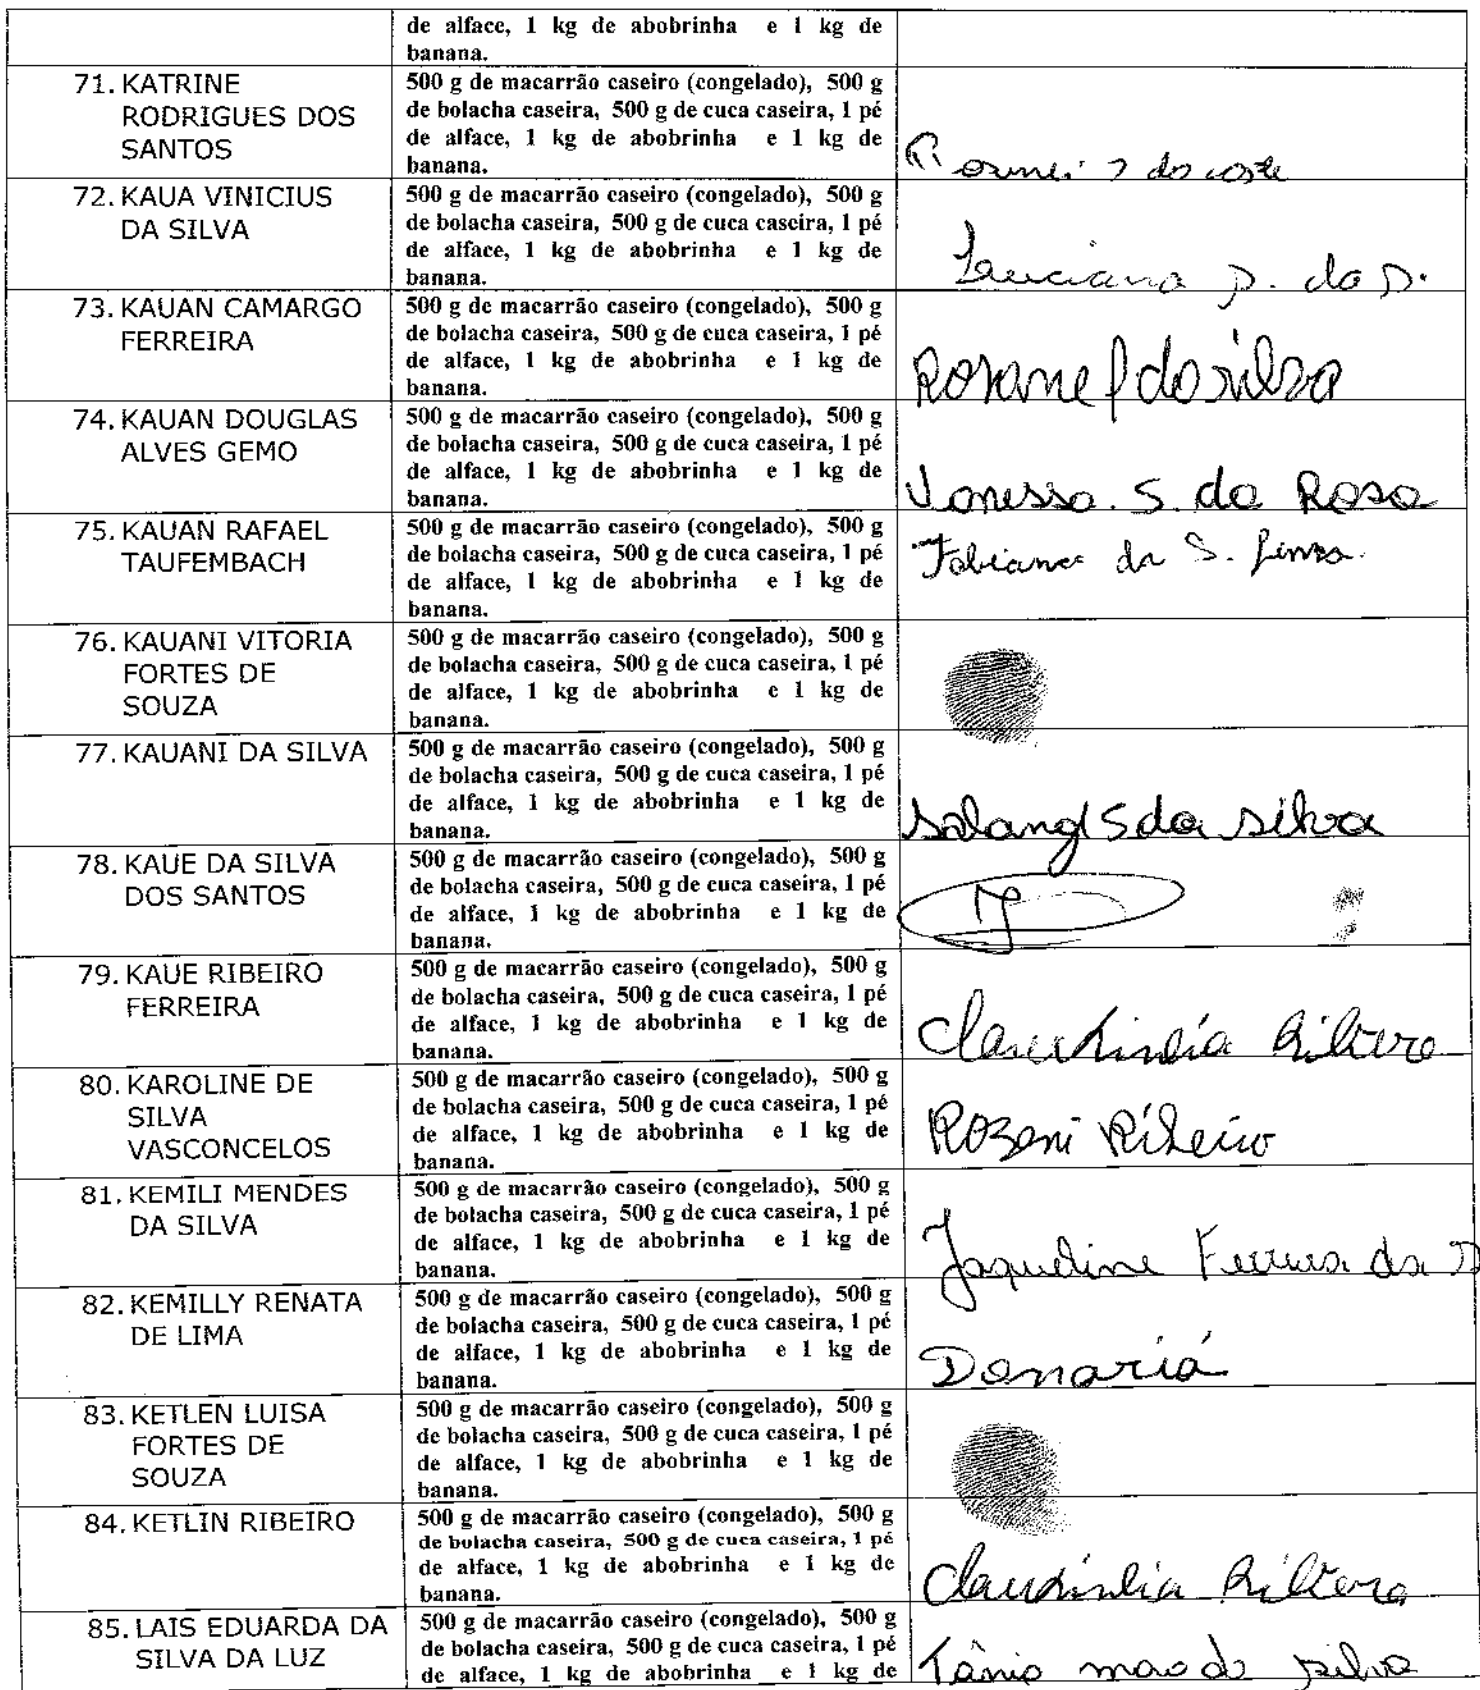 de alface, 1 kg de abobrinha e 1 kg de
banana.
71. KATRINE
RODRIGUES DOS
SANTOS
500 g de macarrão caseiro (congelado), 500 g
de bolacha caseira, 500 g de cuca caseira, 1 pé
de alface, 1 kg de abobrinha e 1 kg de
banana.
72. KAUA VINICIUS
DA SILVA
500 g de macarrão caseiro (congelado), 500 g
de bolacha caseira, 500 g de cuca caseira, 1 pé
de alface, 1 kg de abobrinha e 1 kg de
banana.
73. KAUAN CAMARGO
FERREIRA
500 g de macarrão caseiro (congelado), 500 g
de bolacha caseira, 500 g de cuca caseira, 1 pé
de alface, 1 kg de abobrinha e 1 kg de
banana.
Rosane f da silva
74. KAUAN DOUGLAS
ALVES GEMO
500 g de macarrão caseiro (congelado), 500 g
de bolacha caseira, 500 g de cuca caseira, 1 pé
de alface, 1 kg de abobrinha e 1 kg de
banana.
Vanessa. S. da Rosa
75. KAUAN RAFAEL
TAUFEMBACH
500 g de macarrão caseiro (congelado), 500 g
de bolacha caseira, 500 g de cuca caseira, 1 pé
de alface, 1 kg de abobrinha e 1 kg de
banana.
Fabiana da S.
76. KAUANI VITORIA
FORTES DE
SOUZA
500 g de macarrão caseiro (congelado), 500 g
de bolacha caseira, 500 g de cuca caseira, 1 pé
de alface, 1 kg de abobrinha e 1 kg de
banana.
77. KAUANI DA SILVA
500 g de macarrão caseiro (congelado), 500 g
de bolacha caseira, 500 g de cuca caseira, 1 pé
de alface, 1 kg de abobrinha e 1 kg de
banana.
S da silva
78. KAUE DA SILVA
DOS SANTOS
500 g de macarrão caseiro (congelado), 500 g
de bolacha caseira, 500 g de cuca caseira, 1 pé
de alface, 1 kg de abobrinha e 1 kg de
banana.
79. KAUE RIBEIRO
FERREIRA
500 g de macarrão caseiro (congelado), 500 g
de bolacha caseira, 500 g de cuca caseira, 1 pé
de alface, 1 kg de abobrinha e 1 kg de
banana.
80. KAROLINE DE
SILVA
VASCONCELOS
500 g de macarrão caseiro (congelado), 500 g
de bolacha caseira, 500 g de cuca caseira, 1 pé
de alface, 1 kg de abobrinha e 1 kg de
banana.
Rozeni Ribeiro
81. KEMILI MENDES
DA SILVA
500 g de macarrão caseiro (congelado), 500 g
de bolacha caseira, 500 g de cuca caseira, 1 pé
de alface, 1 kg de abobrinha e 1 kg de
banana.
Jaqueline Ferreira da S
82. KEMILLY RENATA
DE LIMA
500 g de macarrão caseiro (congelado), 500 g
de bolacha caseira, 500 g de cuca caseira, 1 pé
de alface, 1 kg de abobrinha e 1 kg de
banana.
83. KETLEN LUISA
FORTES DE
SOUZA
500 g de macarrão caseiro (congelado), 500 g
de bolacha caseira, 500 g de cuca caseira, 1 pé
de alface, 1 kg de abobrinha e 1 kg de
banana.
84. KETLIN RIBEIRO
500 g de macarrão caseiro (congelado), 500 g
de bolacha caseira, 500 g de cuca caseira, 1 pé
de alface, 1 kg de abobrinha e 1 kg de
banana.
85. LAIS EDUARDA DA
SILVA DA LUZ
500 g de macarrão caseiro (congelado), 500 g
de bolacha caseira, 500 g de cuca caseira, 1 pé
de alface, 1 kg de abobrinha e 1 kg de
Tânia silva